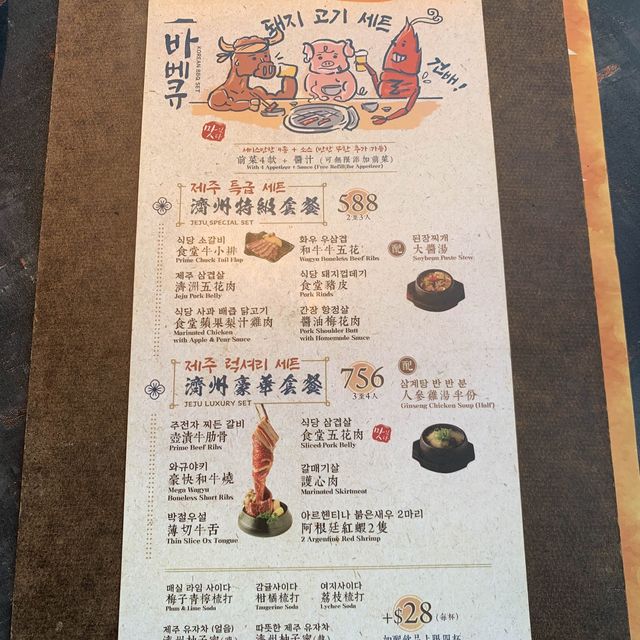 바베큐
KOREAN BBQ SET
돼지 고기 세트
건배!
맛있다
서비스반찬 4종 + 소스 (반찬 무한 추가 가능)
前菜4款 + 醬汁 (可無限添加前菜)
With 4 Appetizer + Sauce (Free Refill the Appetizer)
제주 특급 세트
濟州特級套餐
JEJU SPECIAL SET
588
2至3人
식당 소갈비
食堂牛小排
Prime Chuck Tail Flap
화우 우삼겹
和牛牛五花
Wagyu Boneless Beef Ribs
配
된장찌개
大醬湯
Soybean Paste Stew
제주 삼겹살
濟洲五花肉
Jeju Pork Belly
식당 돼지껍데기
食堂豬皮
Pork Rinds
식당 사과 배즙 닭고기
食堂蘋果梨汁雞肉
Marinated Chicken
with Apple & Pear Sauce
간장 항정살
醬油梅花肉
Pork Shoulder Butt
with Homemade Sauce
제주 럭셔리 세트
濟州豪華套餐
JEJU LUXURY SET
756
3至4人
配
삼계탕 반 반 분
人參雞湯半份
Ginseng Chicken Soup (Half)
주전자 찌든 갈비
壺漬牛肋骨
Prime Beef Ribs
식당 삼겹살
食堂五花肉
Sliced Pork Belly
맛있다
와규야키
豪快和牛燒
Mega Wagyu
Boneless Short Ribs
갈매기살
護心肉
Marinated Skirtmeat
박절우설
薄切牛舌
Thin Slice Ox Tongue
아르헨티나 붉은새우 2마리
阿根廷紅蝦2隻
2 Argentine Red Shrimp
매실 라임 사이다
梅子青檸梳打
Plum & Lime Soda
감귤사이다
柑橘梳打
Tangerine Soda
여지사이다
荔枝梳打
Lychee Soda
+$28 (每杯)
제주 유자차 (얼음)
따뜻한 제주 유자차